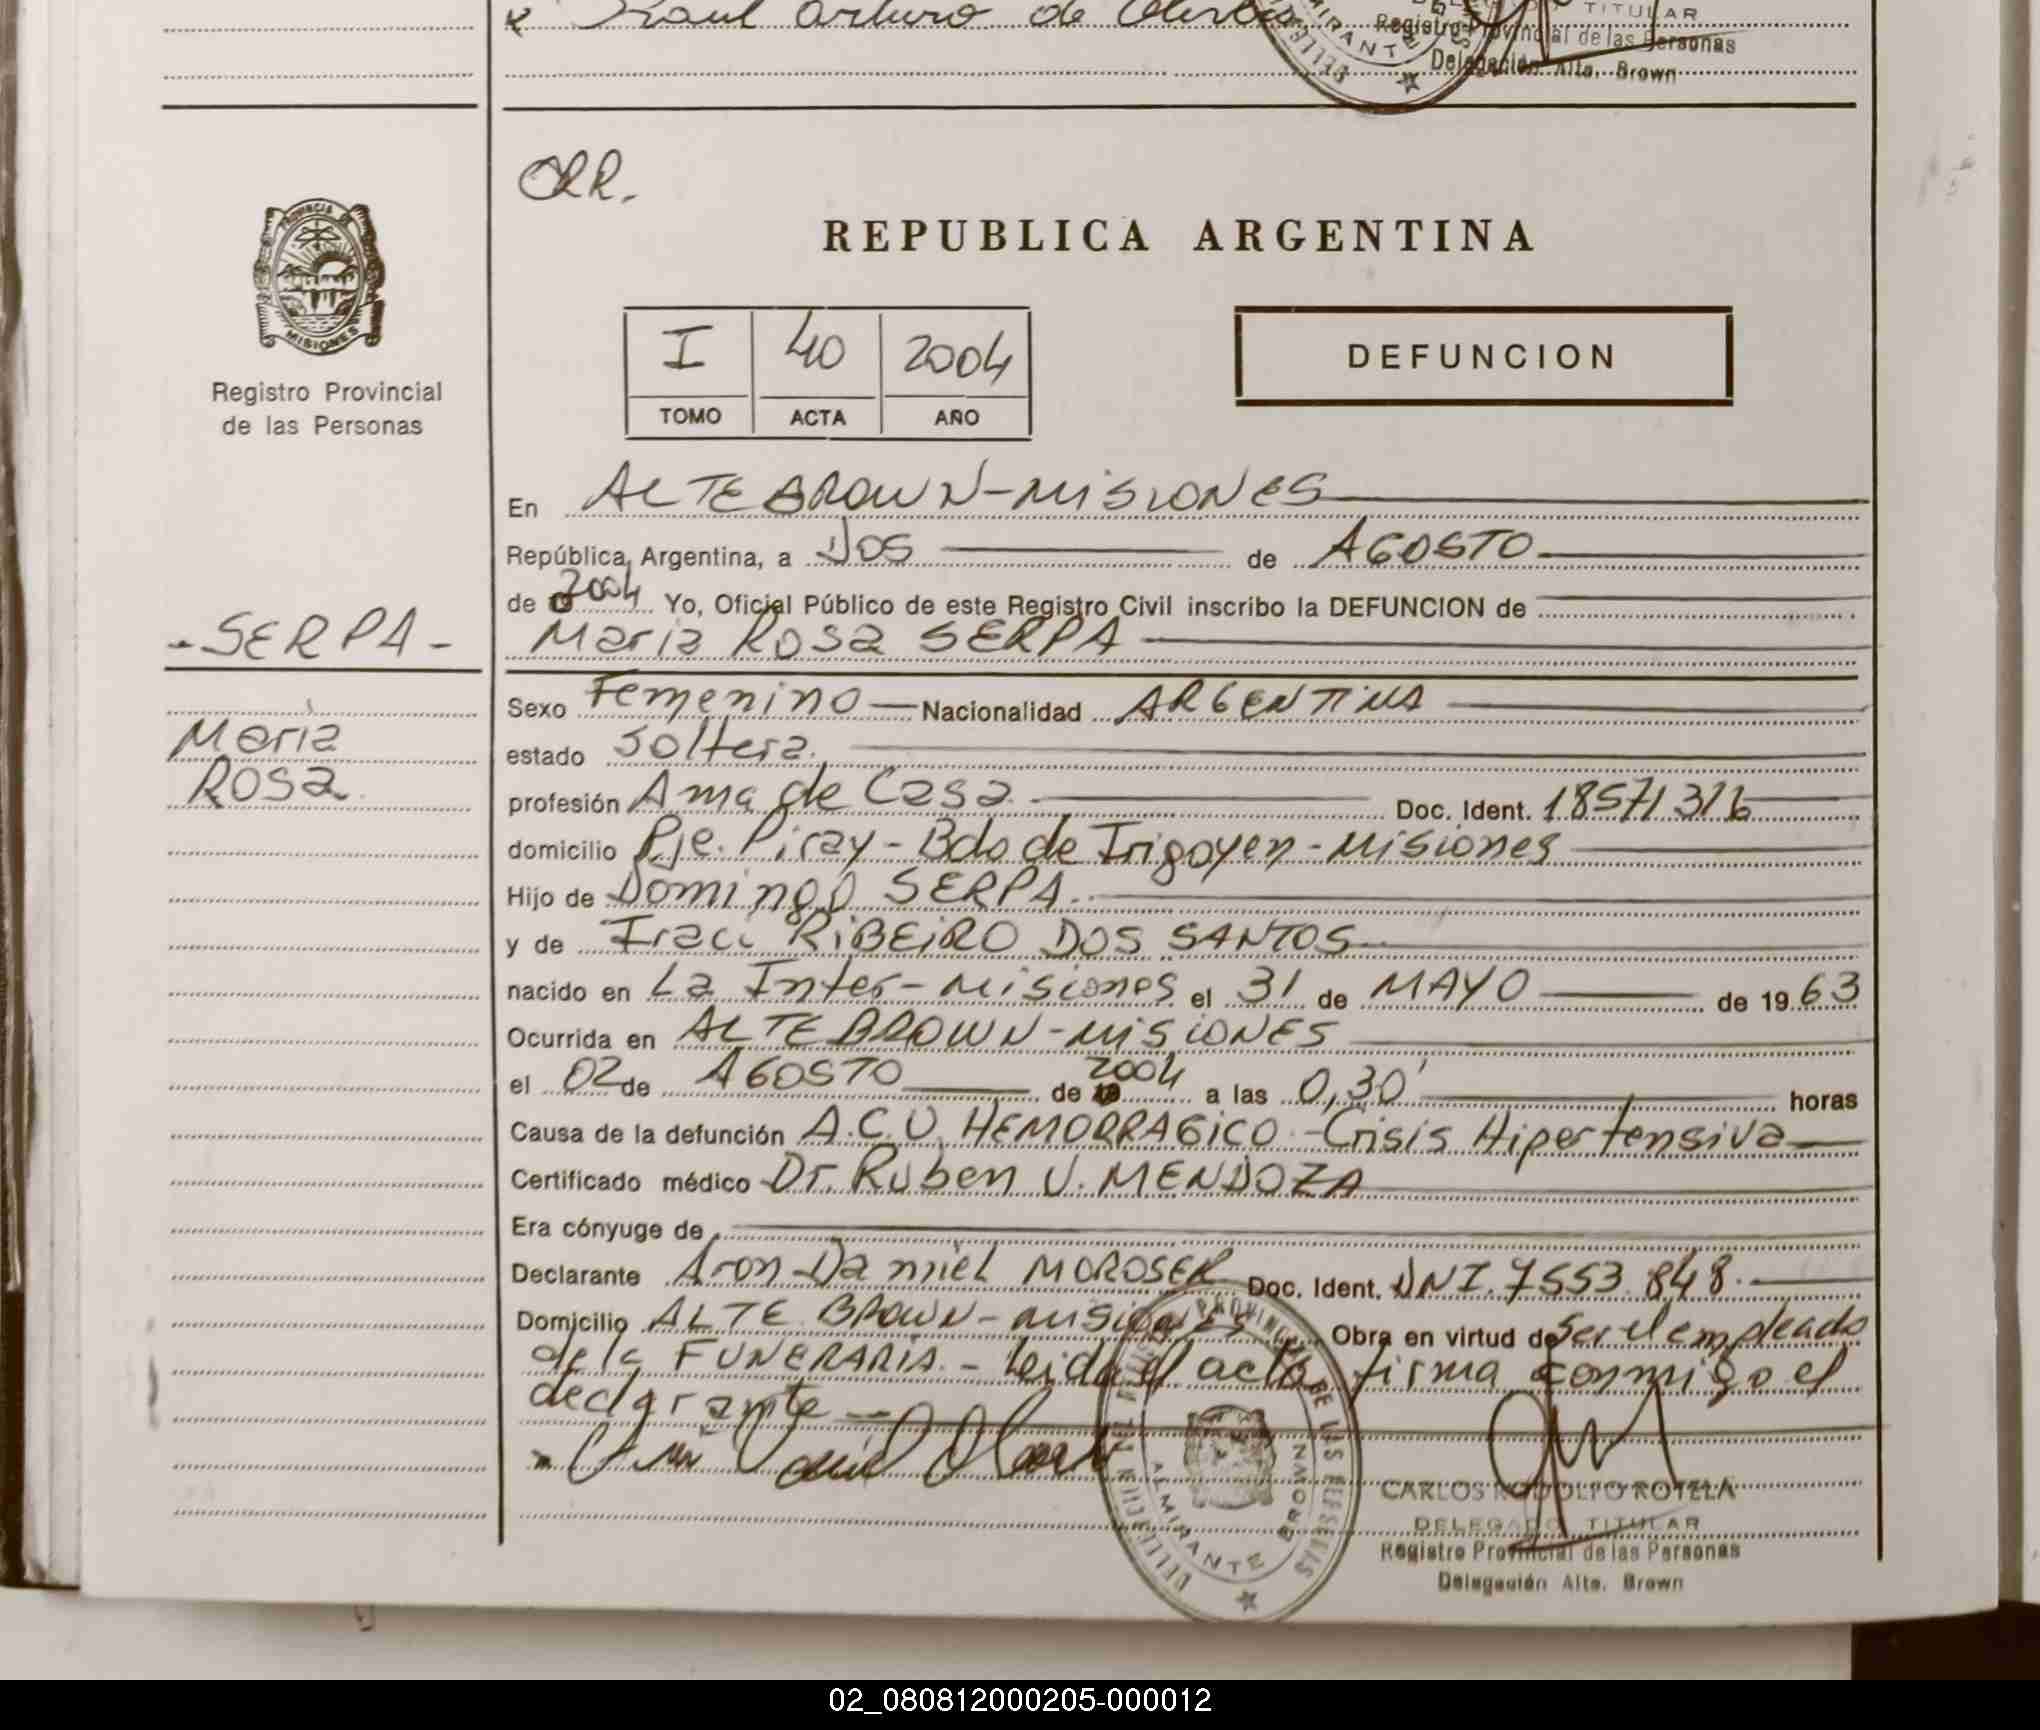 Raul Arturo de
TITULAR
Registro Provincial de las Personas
Delegación Alte. Brown
CRR.
PROVINCIA DE
MISIONES
Registro Provincial
de las Personas
REPUBLICA ARGENTINA
I 40 2004
TOMO ACTA AÑO
DEFUNCION
En ALTE BROWN-MISIONES
República Argentina, a DOS de AGOSTO
de 2004 Yo, Oficial Público de este Registro Civil inscribo la DEFUNCION de
Maria Rosa SERPA
-SERPA-
Maria
Rosa
Sexo Femenino Nacionalidad ARGENTINA
estado Soltera.
profesión Ama de Casa. Doc. Ident. 18571316
domicilio Pje. Piray - Bdo de Irigoyen - Misiones
Hijo de Domingo SERPA.
y de Iraci RIBEIRO DOS SANTOS
nacido en La Inter-Misiones el 31 de MAYO de 1963
Ocurrida en ALTE BROWN-MISIONES
el 02 de AGOSTO de 2004 a las 0,30' horas
Causa de la defunción A.C.V. HEMORRAGICO - Crisis Hipertensiva
Certificado médico Dr. Ruben V. MENDOZA
Era cónyuge de
Declarante Aron Daniel MOROSER Doc. Ident. DNI. 7553.848.
Domicilio ALTE BROWN-MISIONES Obra en virtud de Ser el empleado
de la FUNERARIA. - Leida el acta firma conmigo el
declarante
ALMIRANTE BROWN
CARLOS RODOLFO ROTELA
DELEGADO TITULAR
Registro Provincial de las Personas
Delegación Alte. Brown
02_080812000205-000012